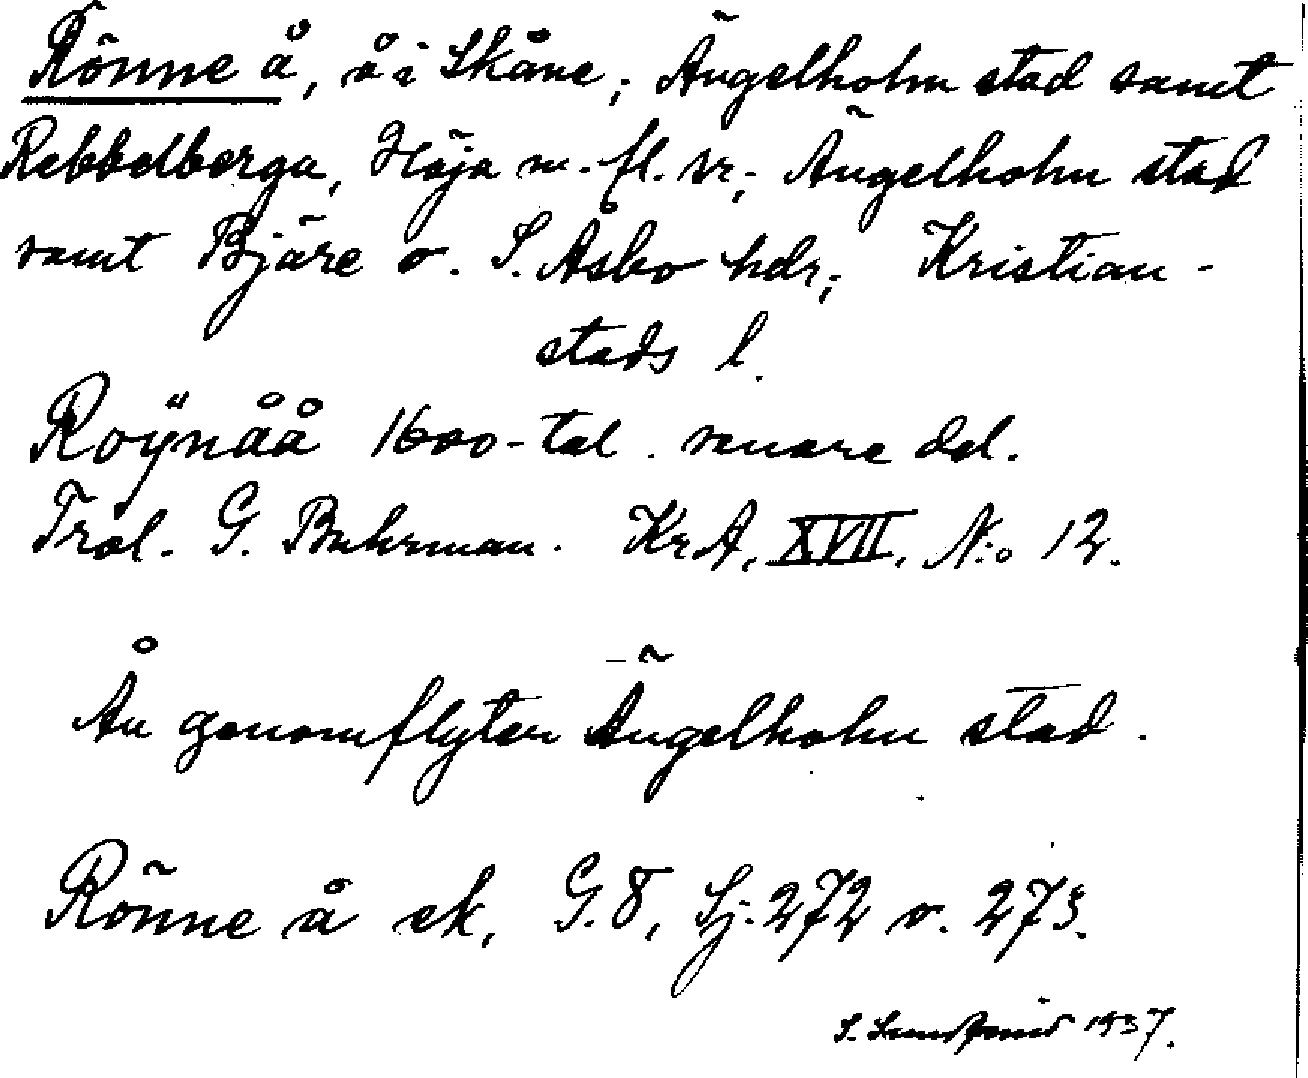 Rönne å, å i Skåne; Ängelholm stad samt
Rebbelberga, Höja m. fl. sr; Ängelholm stad
samt Bjäre o. S. Åsbo hdr; Kristian-
stads l.
Roÿnåå 1600-tal. senare del.
Trol. G. Buhrman. KrA, XVII, N:o 12.
Ån genomflyter Ängelholm stad.
Rönne å ek, G. 8, Sj. 272 o. 273.
S. 1937.